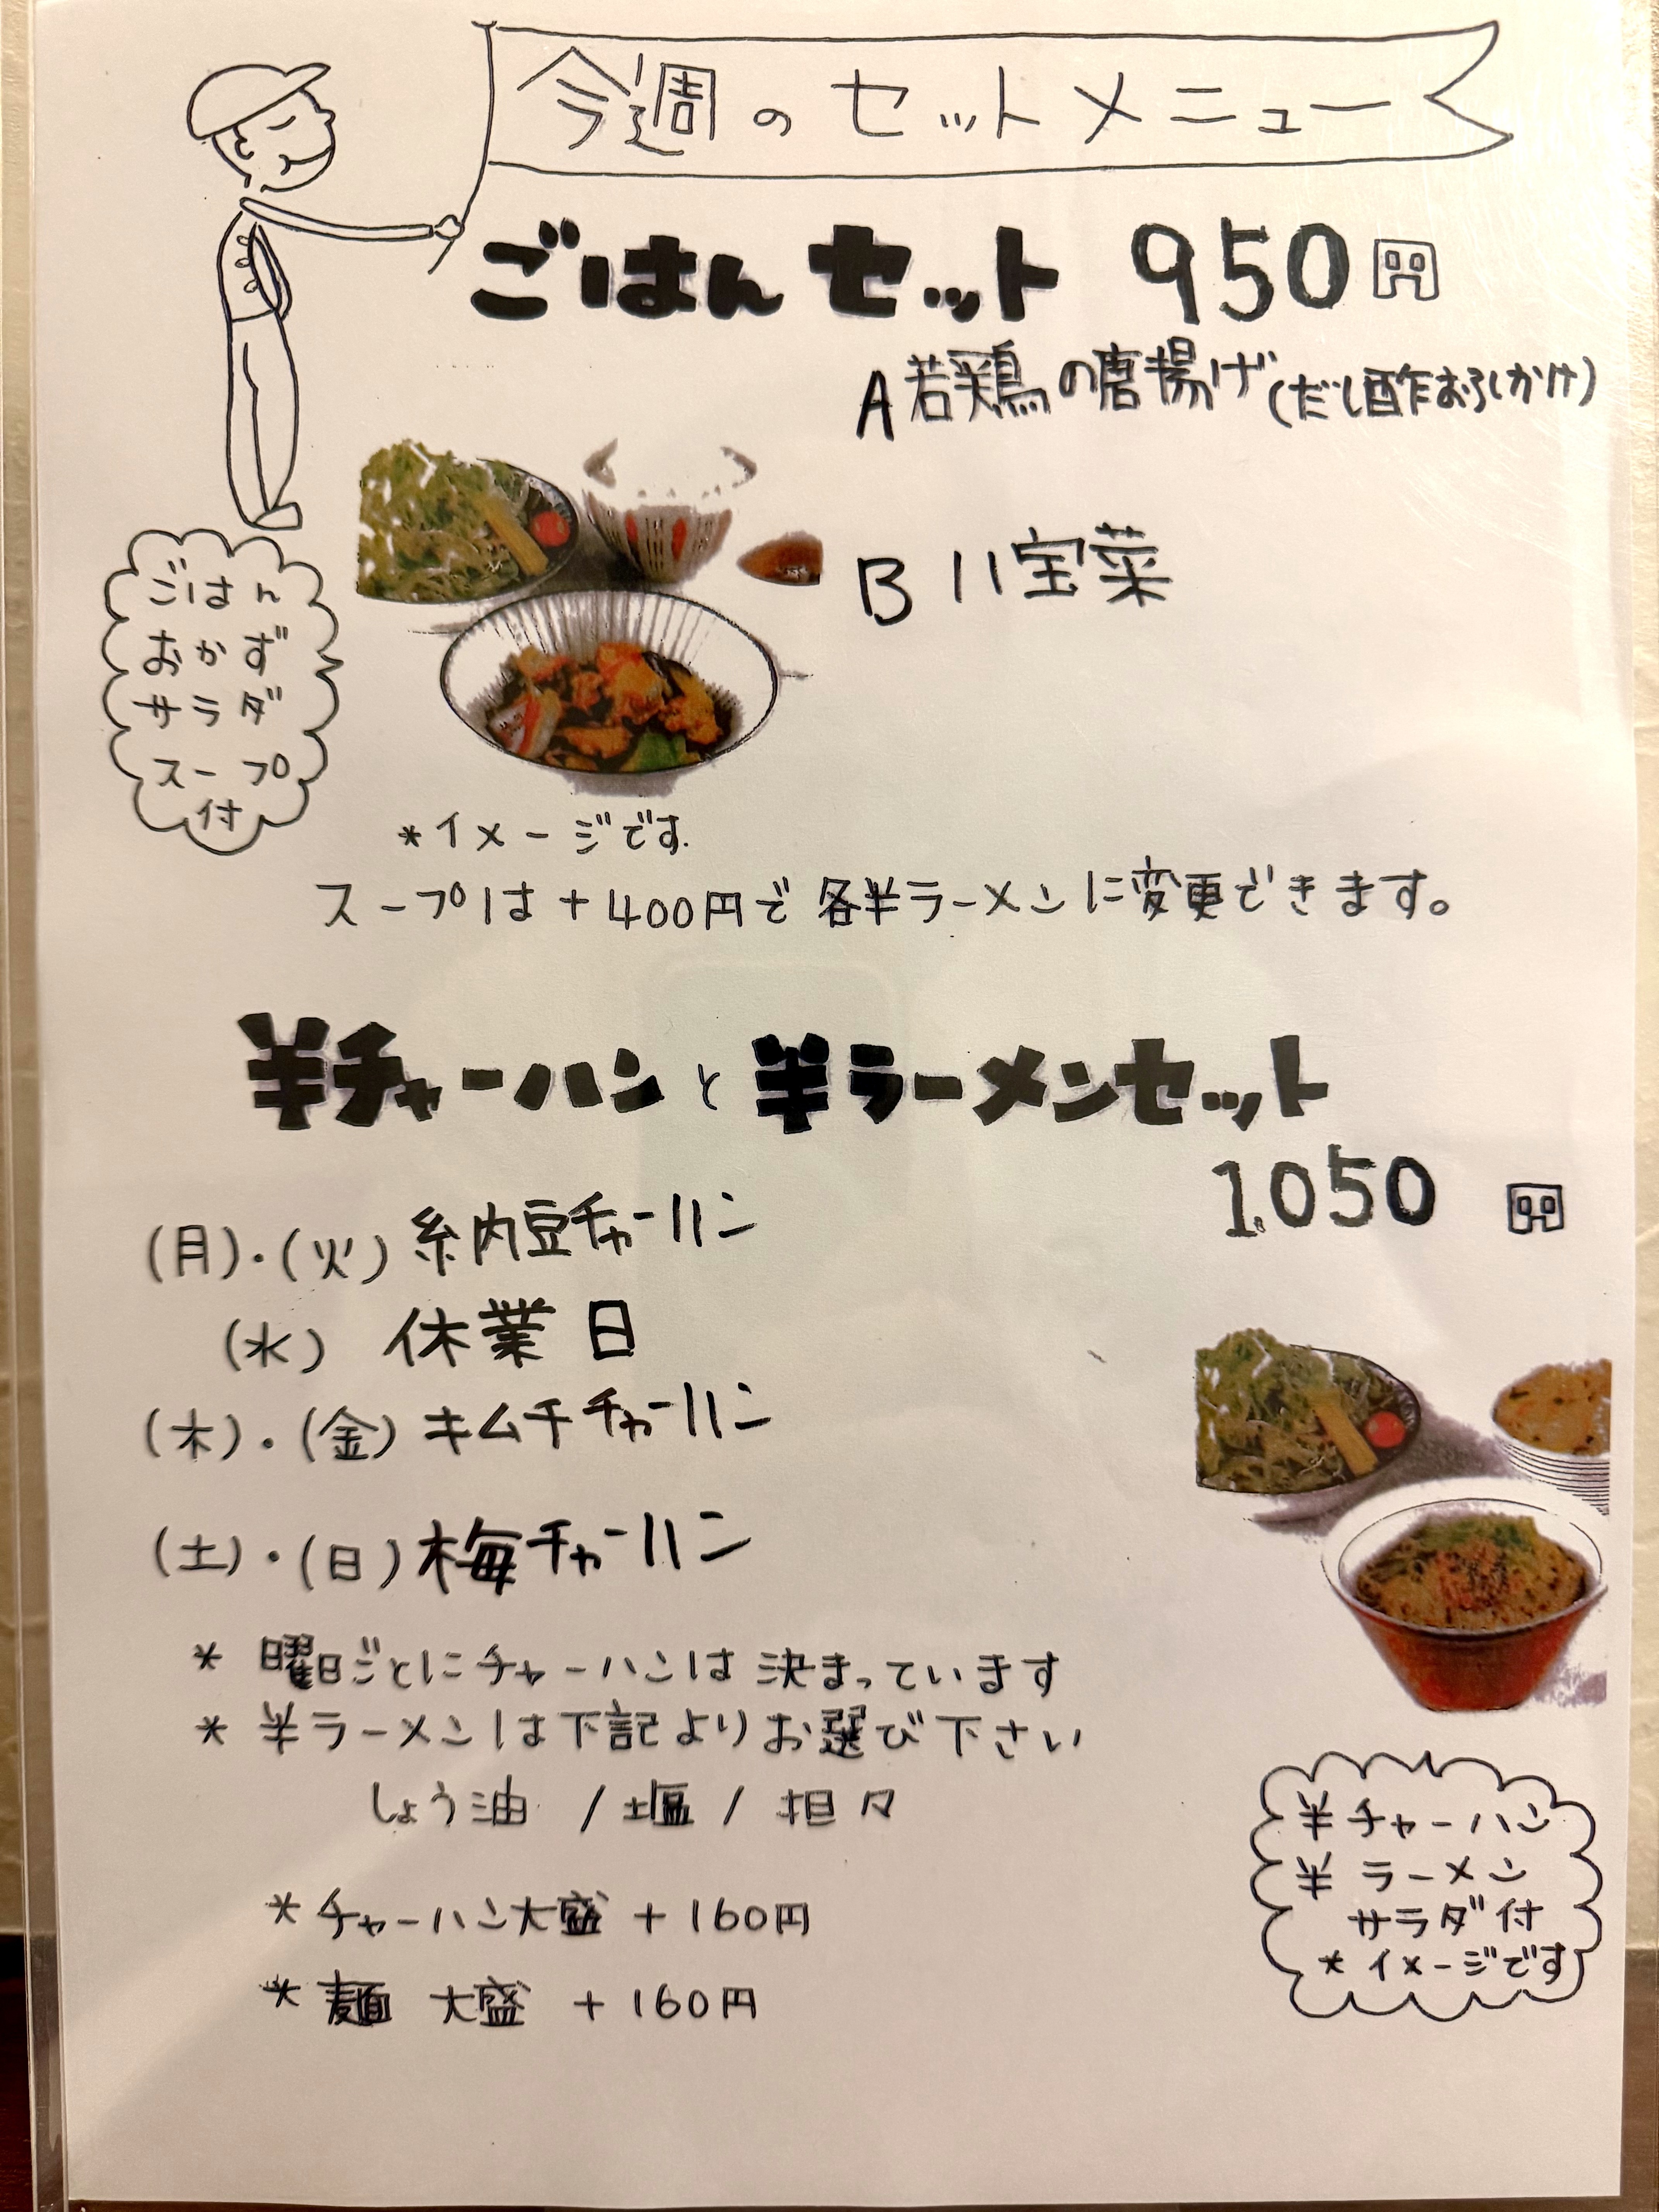 今週のセットメニュー
ごはんセット 950円
A 若鶏の唐揚げ(だし酢おろしかけ)
B 八宝菜
ごはん
おかず
サラダ
スープ
付
*イメージです
スープは+400円で各半ラーメンに変更できます。
半チャーハンと半ラーメンセット
1.050 円
(月)・(火) 納豆チャーハン
(水) 休業日
(木)・(金) キムチチャーハン
(土)・(日) 梅チャーハン
* 曜日ごとにチャーハンは決まっています
* 半ラーメンは下記よりお選び下さい
しょう油 / 塩 / 担々
* チャーハン大盛 +160円
* 麺 大盛 +160円
半チャーハン
半ラーメン
サラダ付
* イメージです